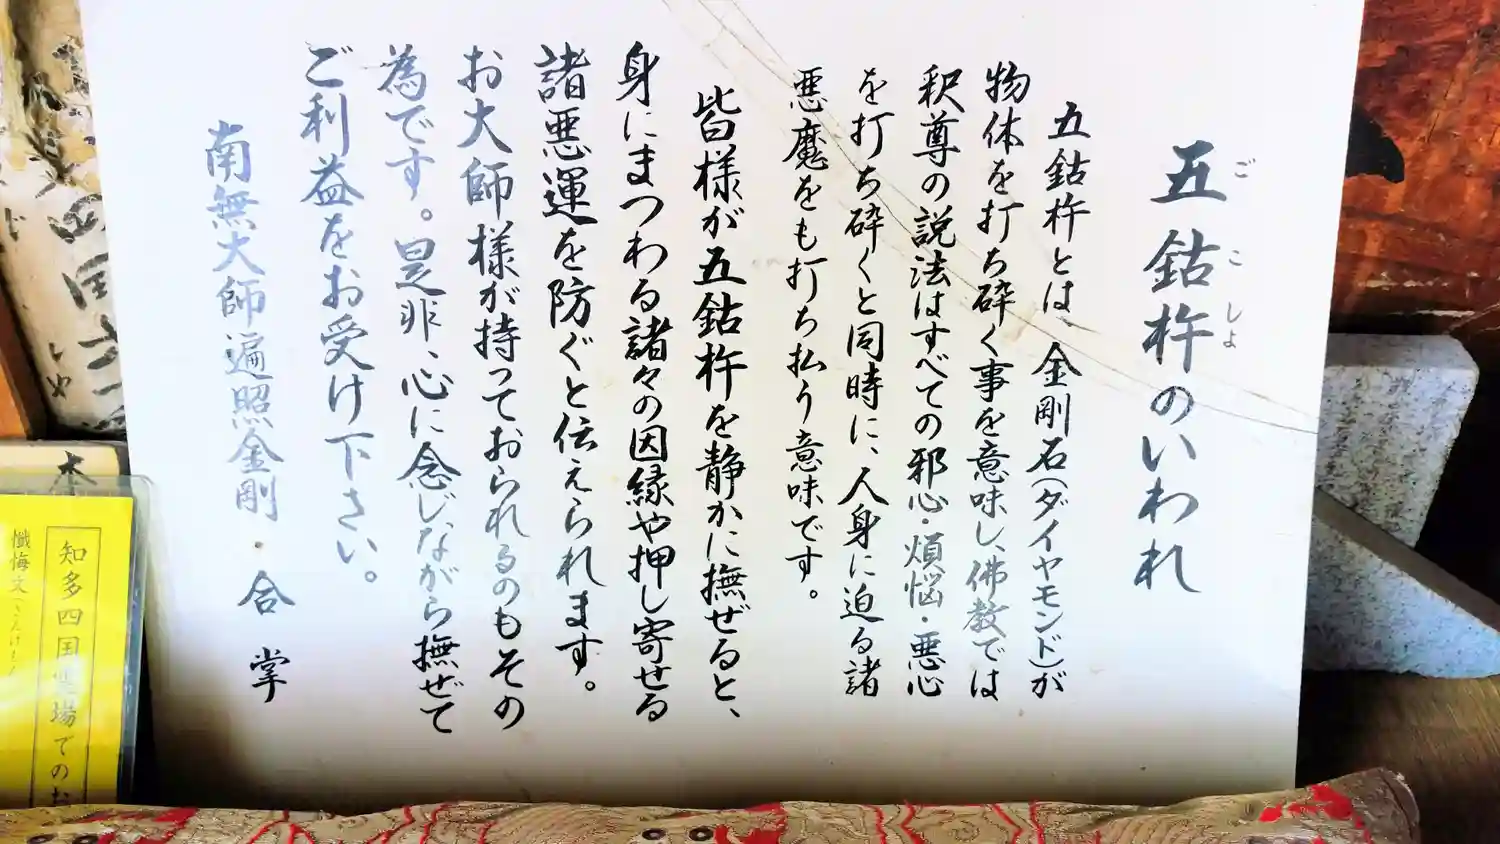 五鈷杵のいわれ
ごこしょ
五鈷杵とは、金剛石(ダイヤモンド)が
物体を打ち砕く事を意味し、佛教では
釈尊の説法はすべての邪心・煩悩・悪心
を打ち砕くと同時に、人身に迫る諸
悪魔をも打ち払う意味です。
皆様が五鈷杵を静かに撫ぜると、
身にまつわる諸々の因縁や押し寄せる
諸悪運を防ぐと伝えられます。
お大師様が持っておられるのもその
為です。是非、心に念じながら撫ぜて
ご利益をお受け下さい。
南無大師遍照金剛・合掌
本
知多四国霊場でのお
懺悔文